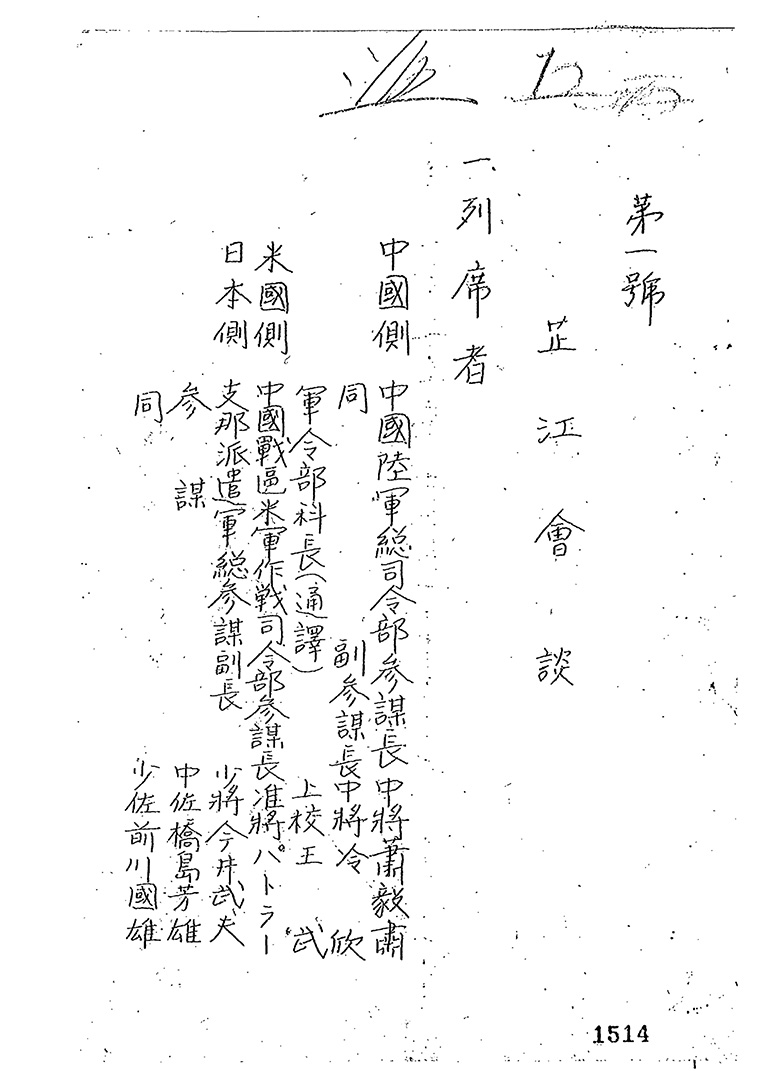 第一號
芷江會談
一、列席者
中國側 中國陸軍総司令部参謀長中將蕭毅肅
同 副参謀長中將冷 欣
軍令部科長(通譯) 上校王 武
米國側 中國戰區米軍作戦司令部参謀長准將パトラー
日本側 支那派遣軍総参謀副長 少將今井武夫
参 謀 中佐橋島芳雄
同 少佐前川國雄
1514